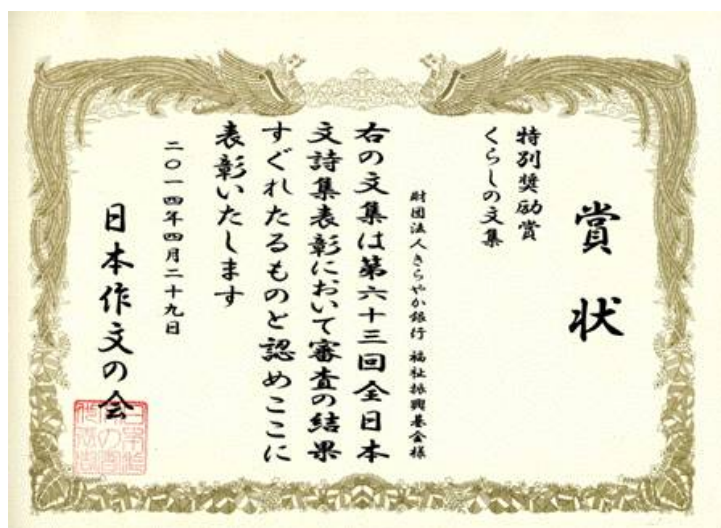 賞状
特別奨励賞
くらしの文集
財団法人きらやか銀行 福祉振興基金様
右の文集は第六十三回全日本
文詩集表彰において審査の結果
すぐれたるものと認めここに
表彰いたします
二〇一四年四月二十九日
日本作文の会